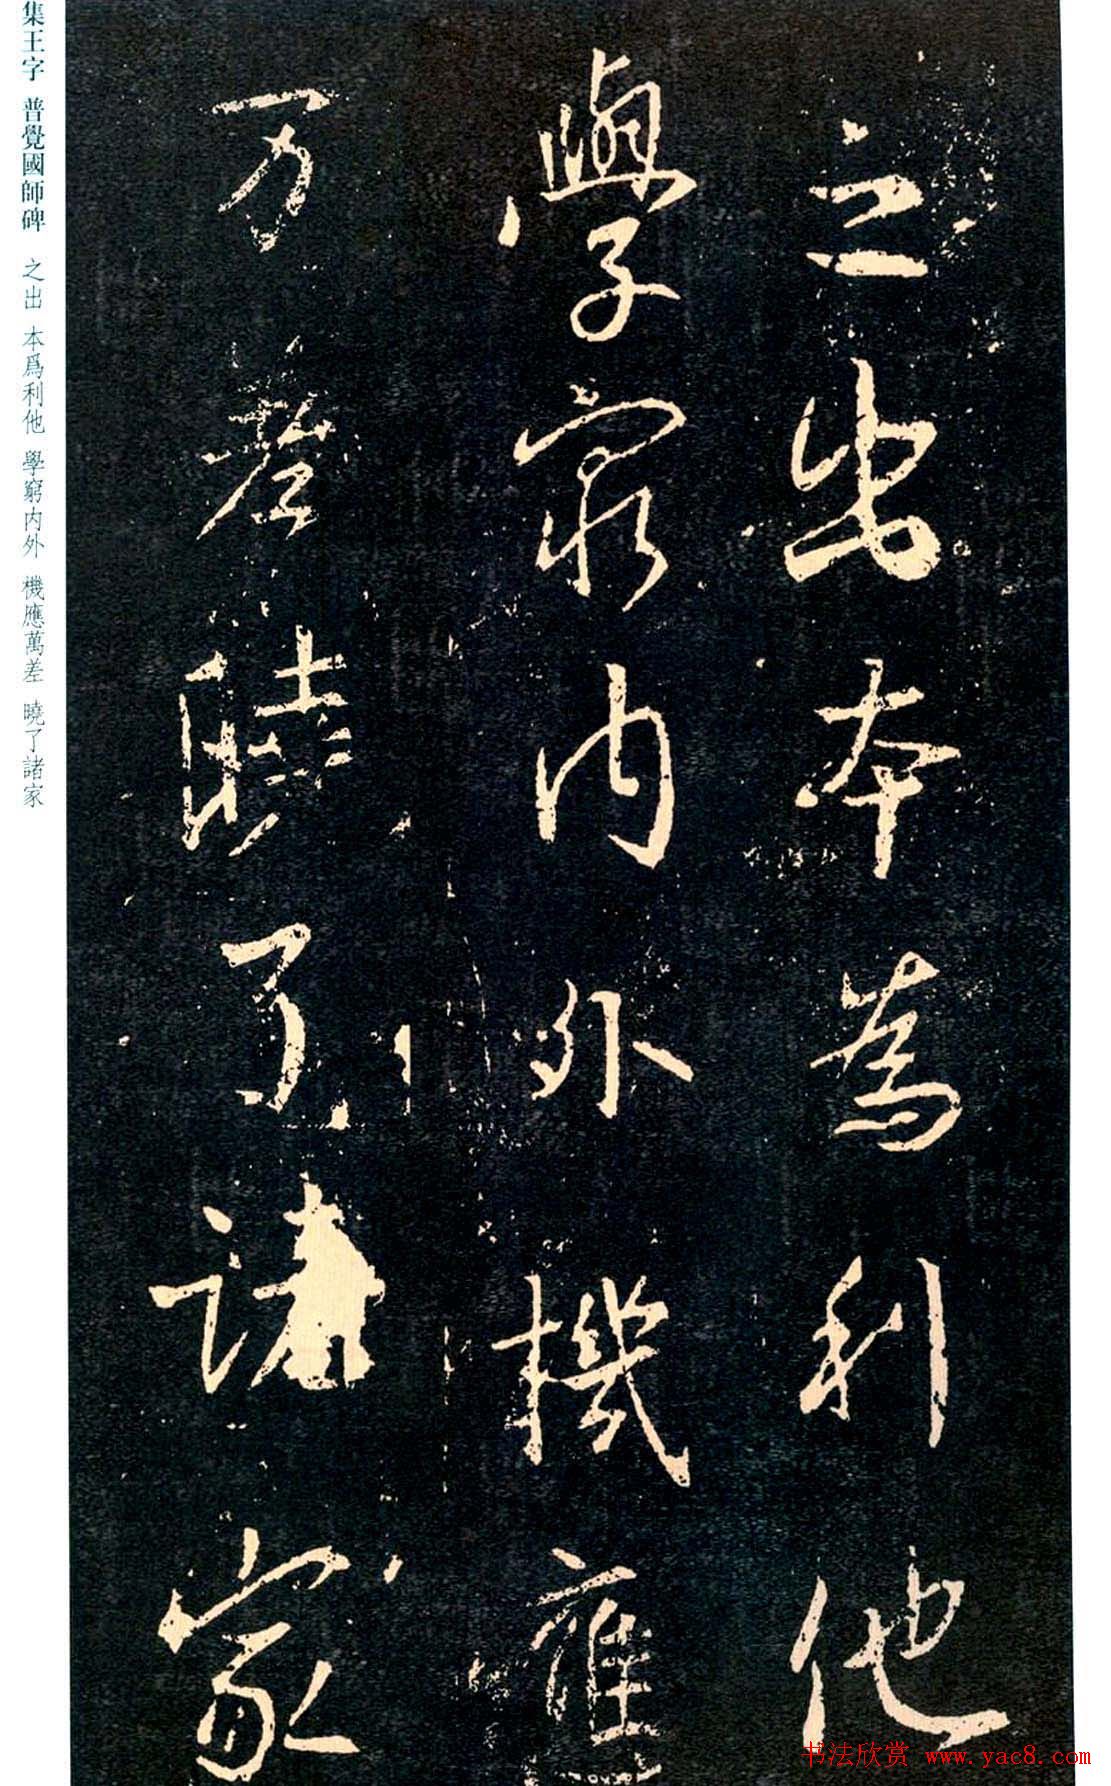 之出本為利他
學窮内外機應
万差曉了諸家
集王字 普覺國師碑 之出 本爲利他 學窮内外 機應萬差 曉了諸家
书法欣赏 www.yac8.com